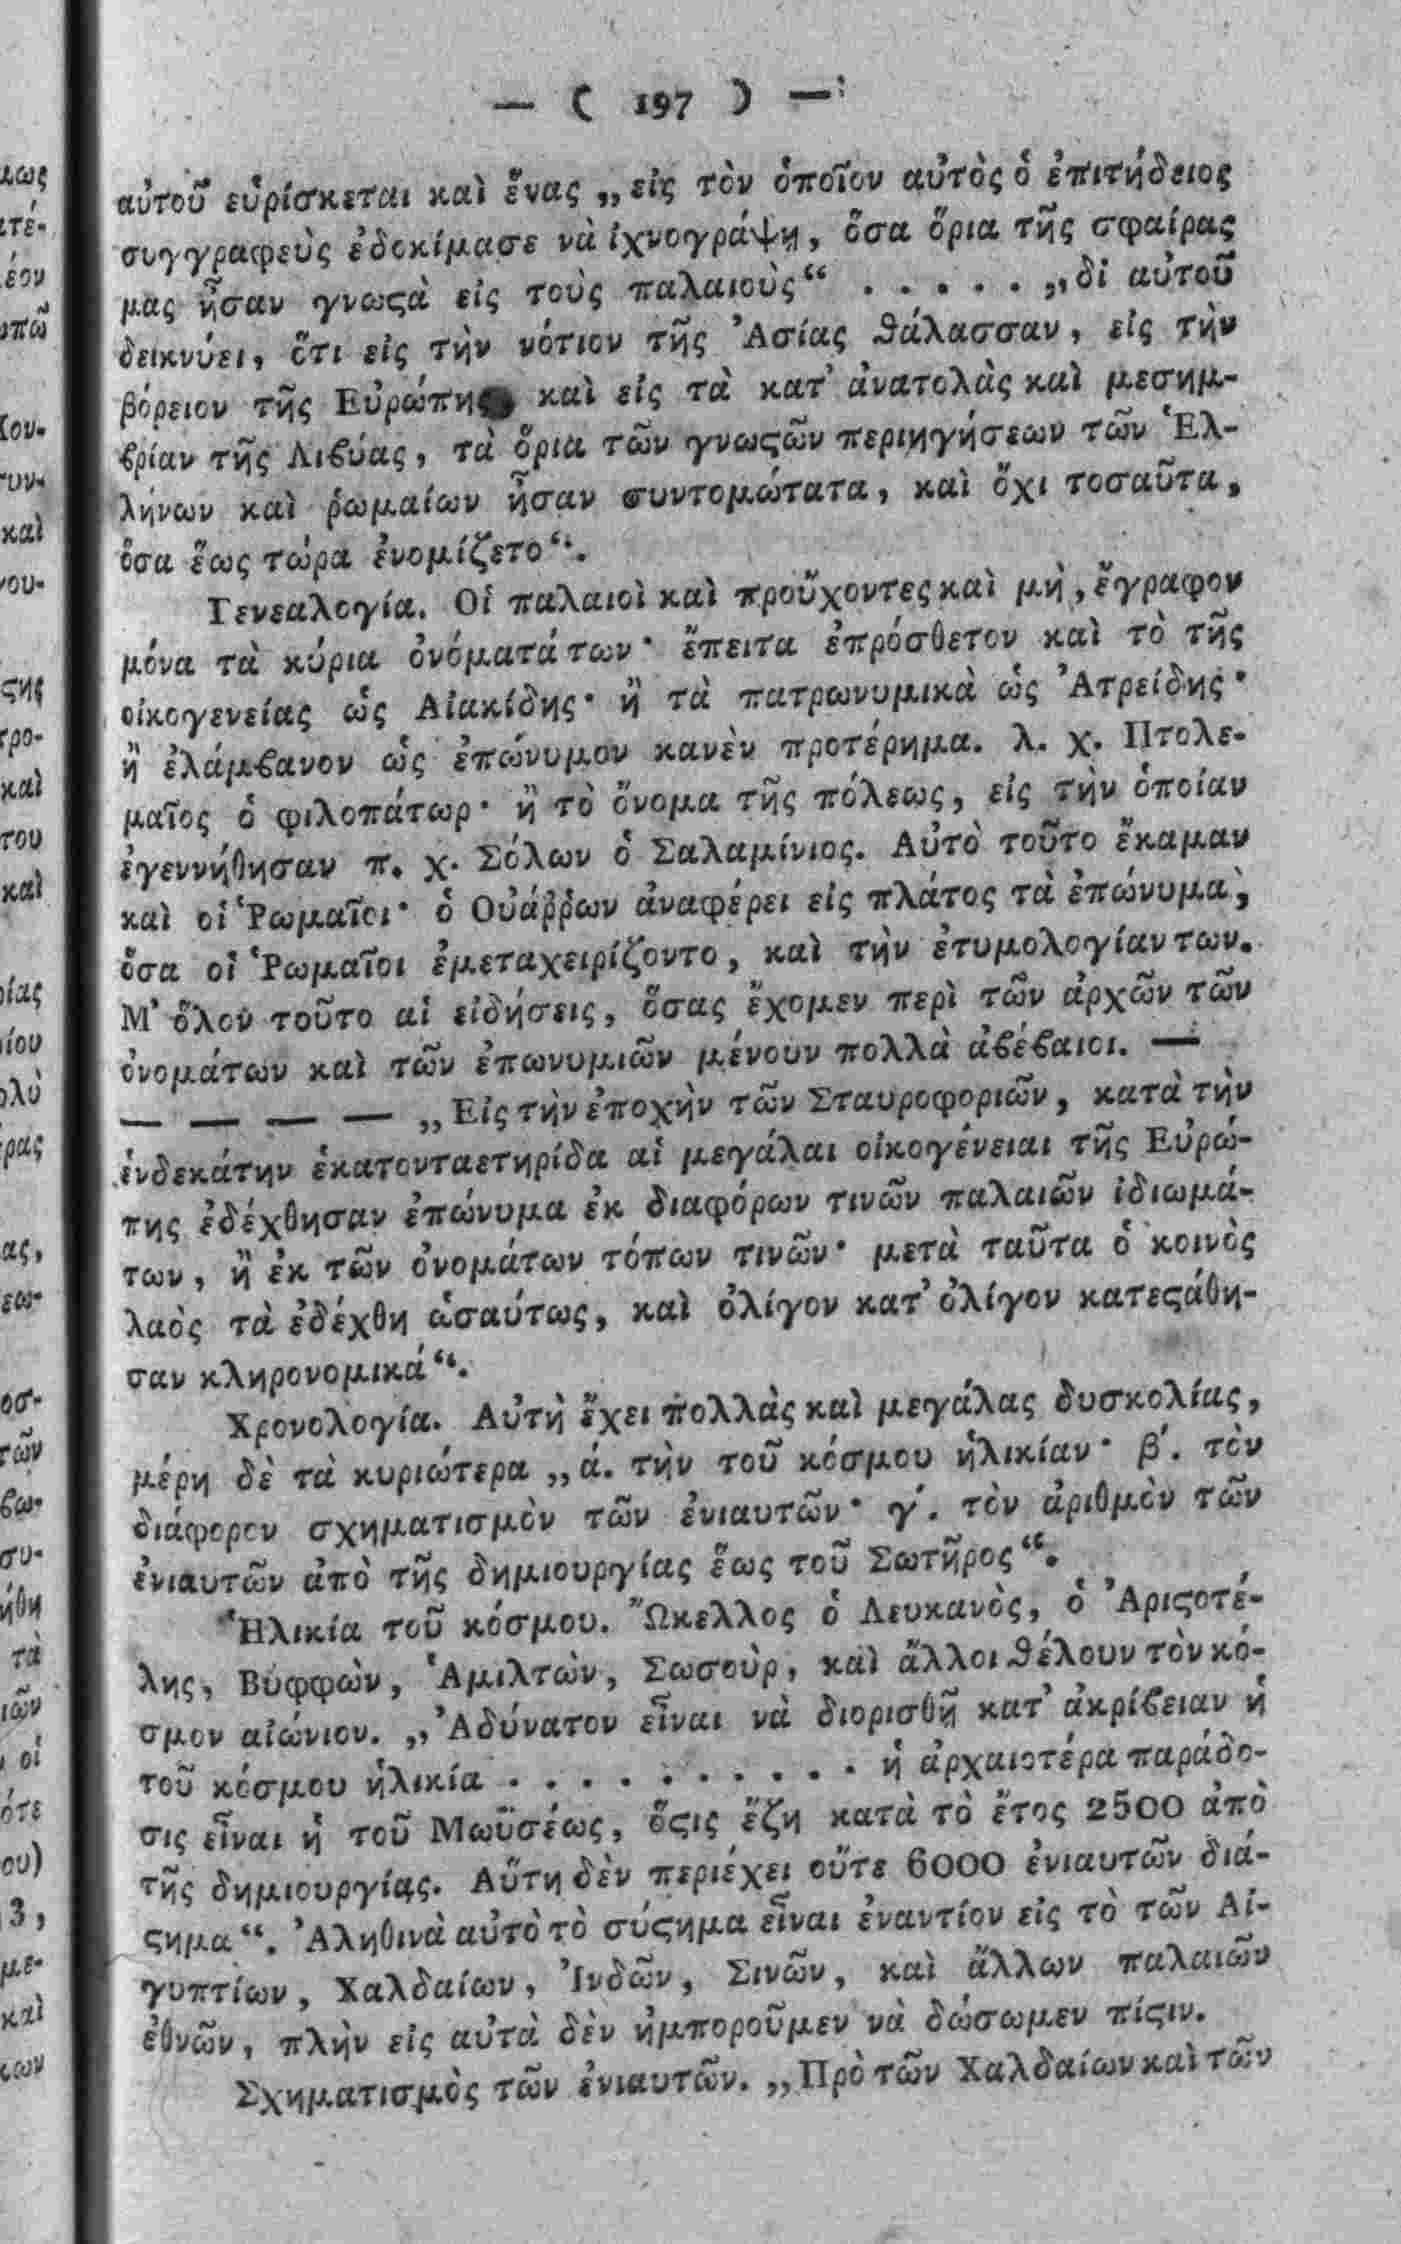 — ( 197 ) —
αὐτοῦ εὑρίσκεται καὶ ἕνας „εἰς τὸν ὁποῖον αὐτὸς ὁ ἐπιτήδειος
συγγραφεὺς ἐδοκίμασε νὰ ἰχνογράψῃ, ὅσα ὅρια τῆς σφαίρας
μας ἦσαν γνωϛὰ εἰς τοὺς παλαιοὺς“ . . . . . „δι αὐτοῦ
δεικνύει, ὅτι εἰς τὴν νότιον τῆς Ἀσίας θάλασσαν, εἰς τὴν
βόρειον τῆς Εὐρώπης, καὶ εἰς τὰ κατ' ἀνατολὰς καὶ μεσημ-
βρίαν τῆς Λιβύας, τὰ ὅρια τῶν γνωϛῶν περιηγήσεων τῶν Ἑλ-
λήνων καὶ ῥωμαίων ἦσαν συντομώτατα, καὶ ὄχι τοσαῦτα,
ὅσα ἕως τώρα ἐνομίζετο“.
Γενεαλογία. Οἱ παλαιοὶ καὶ προὔχοντες καὶ μὴ, ἔγραφον
μόνα τὰ κύρια ὀνόματά των· ἔπειτα ἐπρόσθετον καὶ τὸ τῆς
οἰκογενείας ὡς Αἰακίδης· ἢ τὰ πατρωνυμικὰ ὡς Ἀτρείδης·
ἢ ἐλάμβανον ὡς ἐπώνυμον κανὲν προτέρημα. λ. χ. Πτολε-
μαῖος ὁ φιλοπάτωρ· ἢ τὸ ὄνομα τῆς πόλεως, εἰς τὴν ὁποίαν
ἐγεννήθησαν π. χ. Σόλων ὁ Σαλαμίνιος. Αὐτὸ τοῦτο ἔκαμαν
καὶ οἱ Ῥωμαῖοι· ὁ Οὐάῤῥων ἀναφέρει εἰς πλάτος τὰ ἐπώνυμα,
ὅσα οἱ Ῥωμαῖοι ἐμεταχειρίζοντο, καὶ τὴν ἐτυμολογίαν των.
Μ' ὅλον τοῦτο αἱ εἰδήσεις, ὅσας ἔχομεν περὶ τῶν ἀρχῶν τῶν
ὀνομάτων καὶ τῶν ἐπωνυμιῶν μένουν πολλὰ ἀβέβαιοι. —
— — — — „Εἰς τὴν ἐποχὴν τῶν Σταυροφοριῶν, κατὰ τὴν
ἑνδεκάτην ἑκατονταετηρίδα αἱ μεγάλαι οἰκογένειαι τῆς Εὐρώ-
πης ἐδέχθησαν ἐπώνυμα ἐκ διαφόρων τινῶν παλαιῶν ἰδιωμά-
των, ἢ ἐκ τῶν ὀνομάτων τόπων τινῶν· μετὰ ταῦτα ὁ κοινὸς
λαὸς τὰ ἐδέχθη ὡσαύτως, καὶ ὀλίγον κατ' ὀλίγον κατεϛάθη-
σαν κληρονομικά“.
Χρονολογία. Αὐτὴ ἔχει πολλὰς καὶ μεγάλας δυσκολίας,
μέρη δὲ τὰ κυριώτερα „ά. τὴν τοῦ κόσμου ἡλικίαν· β΄. τὸν
διάφορον σχηματισμὸν τῶν ἐνιαυτῶν· γ΄. τὸν ἀριθμὸν τῶν
ἐνιαυτῶν ἀπὸ τῆς δημιουργίας ἕως τοῦ Σωτῆρος“.
Ἡλικία τοῦ κόσμου. Ὤκελλος ὁ Λευκανὸς, ὁ Ἀριϛοτέ-
λης, Βυφφὼν, Ἁμιλτὼν, Σωσοὺρ, καὶ ἄλλοι θέλουν τὸν κό-
σμον αἰώνιον. „Ἀδύνατον εἶναι νὰ διορισθῇ κατ' ἀκρίβειαν ἡ
τοῦ κόσμου ἡλικία . . . . . . . . . . ἡ ἀρχαιοτέρα παράδο-
σις εἶναι ἡ τοῦ Μωϋσέως, ὅϛις ἔζη κατὰ τὸ ἔτος 2500 ἀπὸ
τῆς δημιουργίας. Αὕτη δὲν περιέχει οὔτε 6000 ἐνιαυτῶν διά-
ϛημα“. Ἀληθινὰ αὐτὸ τὸ σύϛημα εἶναι ἐναντίον εἰς τὸ τῶν Αἰ-
γυπτίων, Χαλδαίων, Ἰνδῶν, Σινῶν, καὶ ἄλλων παλαιῶν
ἐθνῶν, πλὴν εἰς αὐτὰ δὲν ἠμποροῦμεν νὰ δώσωμεν πίϛιν.
Σχηματισμὸς τῶν ἐνιαυτῶν. „Πρὸ τῶν Χαλδαίων καὶ τῶν